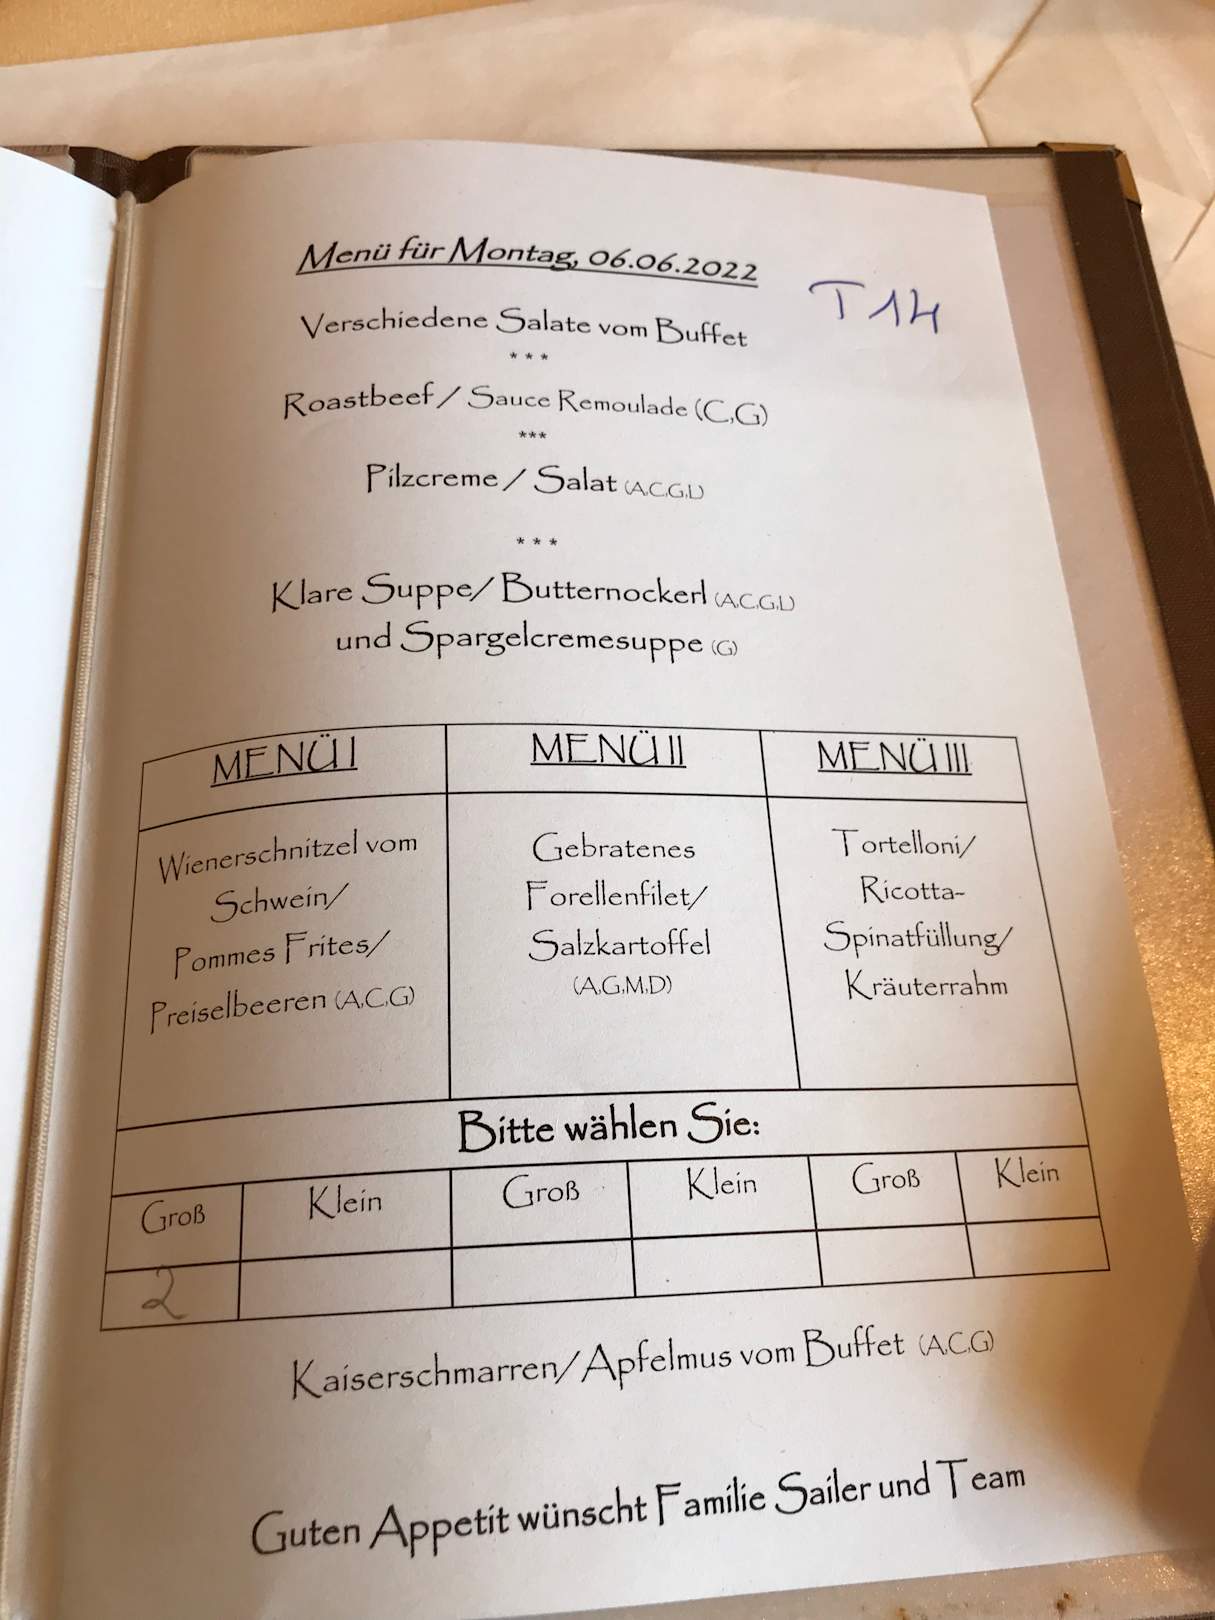 Menü für Montag, 06.06.2022
T 14
Verschiedene Salate vom Buffet
* * *
Roastbeef / Sauce Remoulade (C,G)
***
Pilzcreme / Salat (A,C,G,L)
* * *
Klare Suppe/ Butternockerl (A,C,G,L)
und Spargelcremesuppe (G)
MENÜ I MENÜ II MENÜ III
Wienerschnitzel vom
Schwein/
Pommes Frites/
Preiselbeeren (A,C,G)
Gebratenes
Forellenfilet/
Salzkartoffel
(A,G,M,D)
Tortelloni/
Ricotta-
Spinatfüllung/
Kräuterrahm
Bitte wählen Sie:
Groß Klein Groß Klein Groß Klein
2
Kaiserschmarren/Apfelmus vom Buffet (A,C,G)
Guten Appetit wünscht Familie Sailer und Team